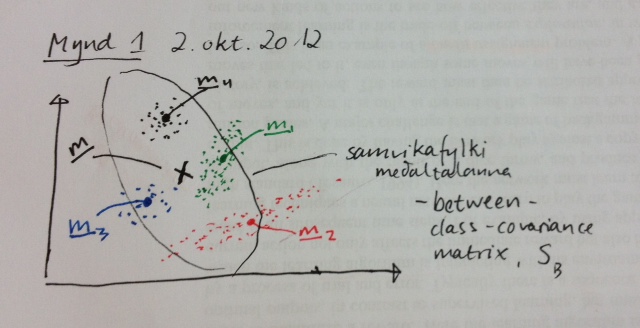 Mynd 1 2. okt. 2012
m4
m1
m
samvikafylki
meðaltalanna
m3
m2
-between-
class-covariance
matrix, SB